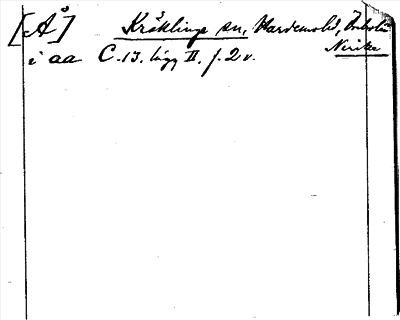 [Å] Kräklinge sn, Hardemo hd, Örebro län
Nerike
i aa C. 13. lägg II. f. 2 v.